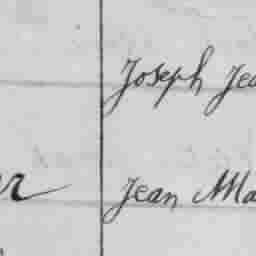 Joseph Jea
er Jean Ma